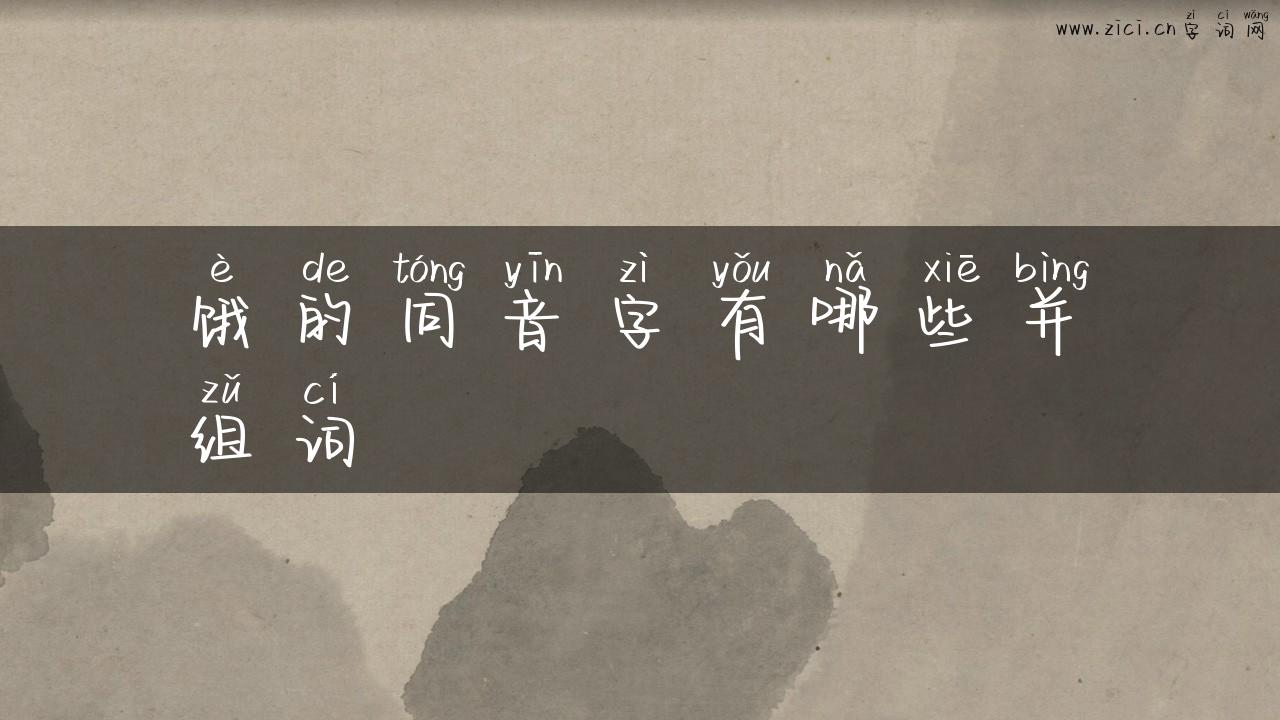 zì cí wǎng
www.zici.cn 字 词 网
è de tóng yīn zì yǒu nǎ xiē bìng
饿 的 同 音 字 有 哪 些 并
zǔ cí
组 词